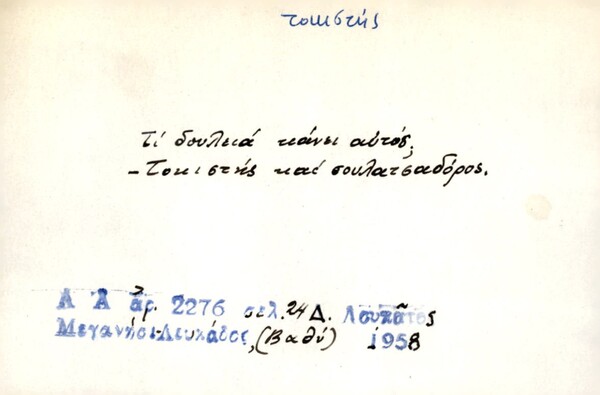 τοκιστής
Τί δουλειά κάνει αὐτός;
– Τοκιστής καί σουλατσαδόρος.
Λ Α ἀρ. 2276 σελ. 24 Δ. Λουκᾶτος
Μεγανήσι-Λευκάδος, (Βαθύ) 1958